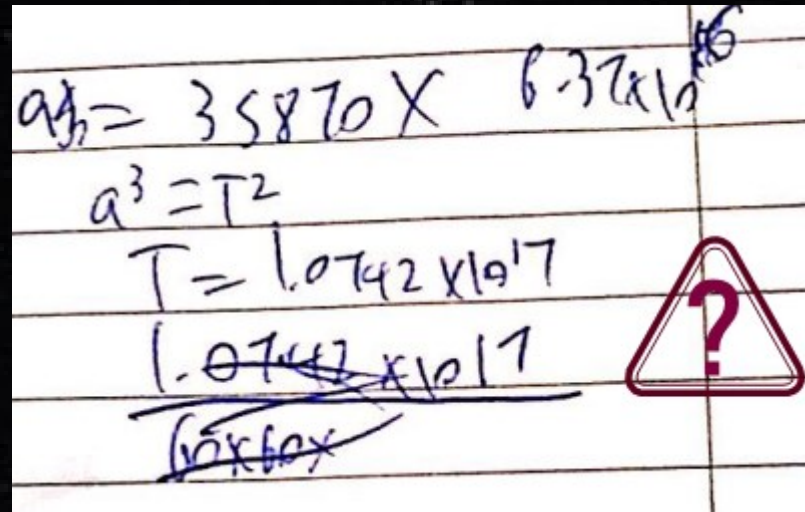 = 35870 X 6.37x10^6
a³ = T²
T = 1.0742 x10^17
1.0742 x10^17
60x60x
?